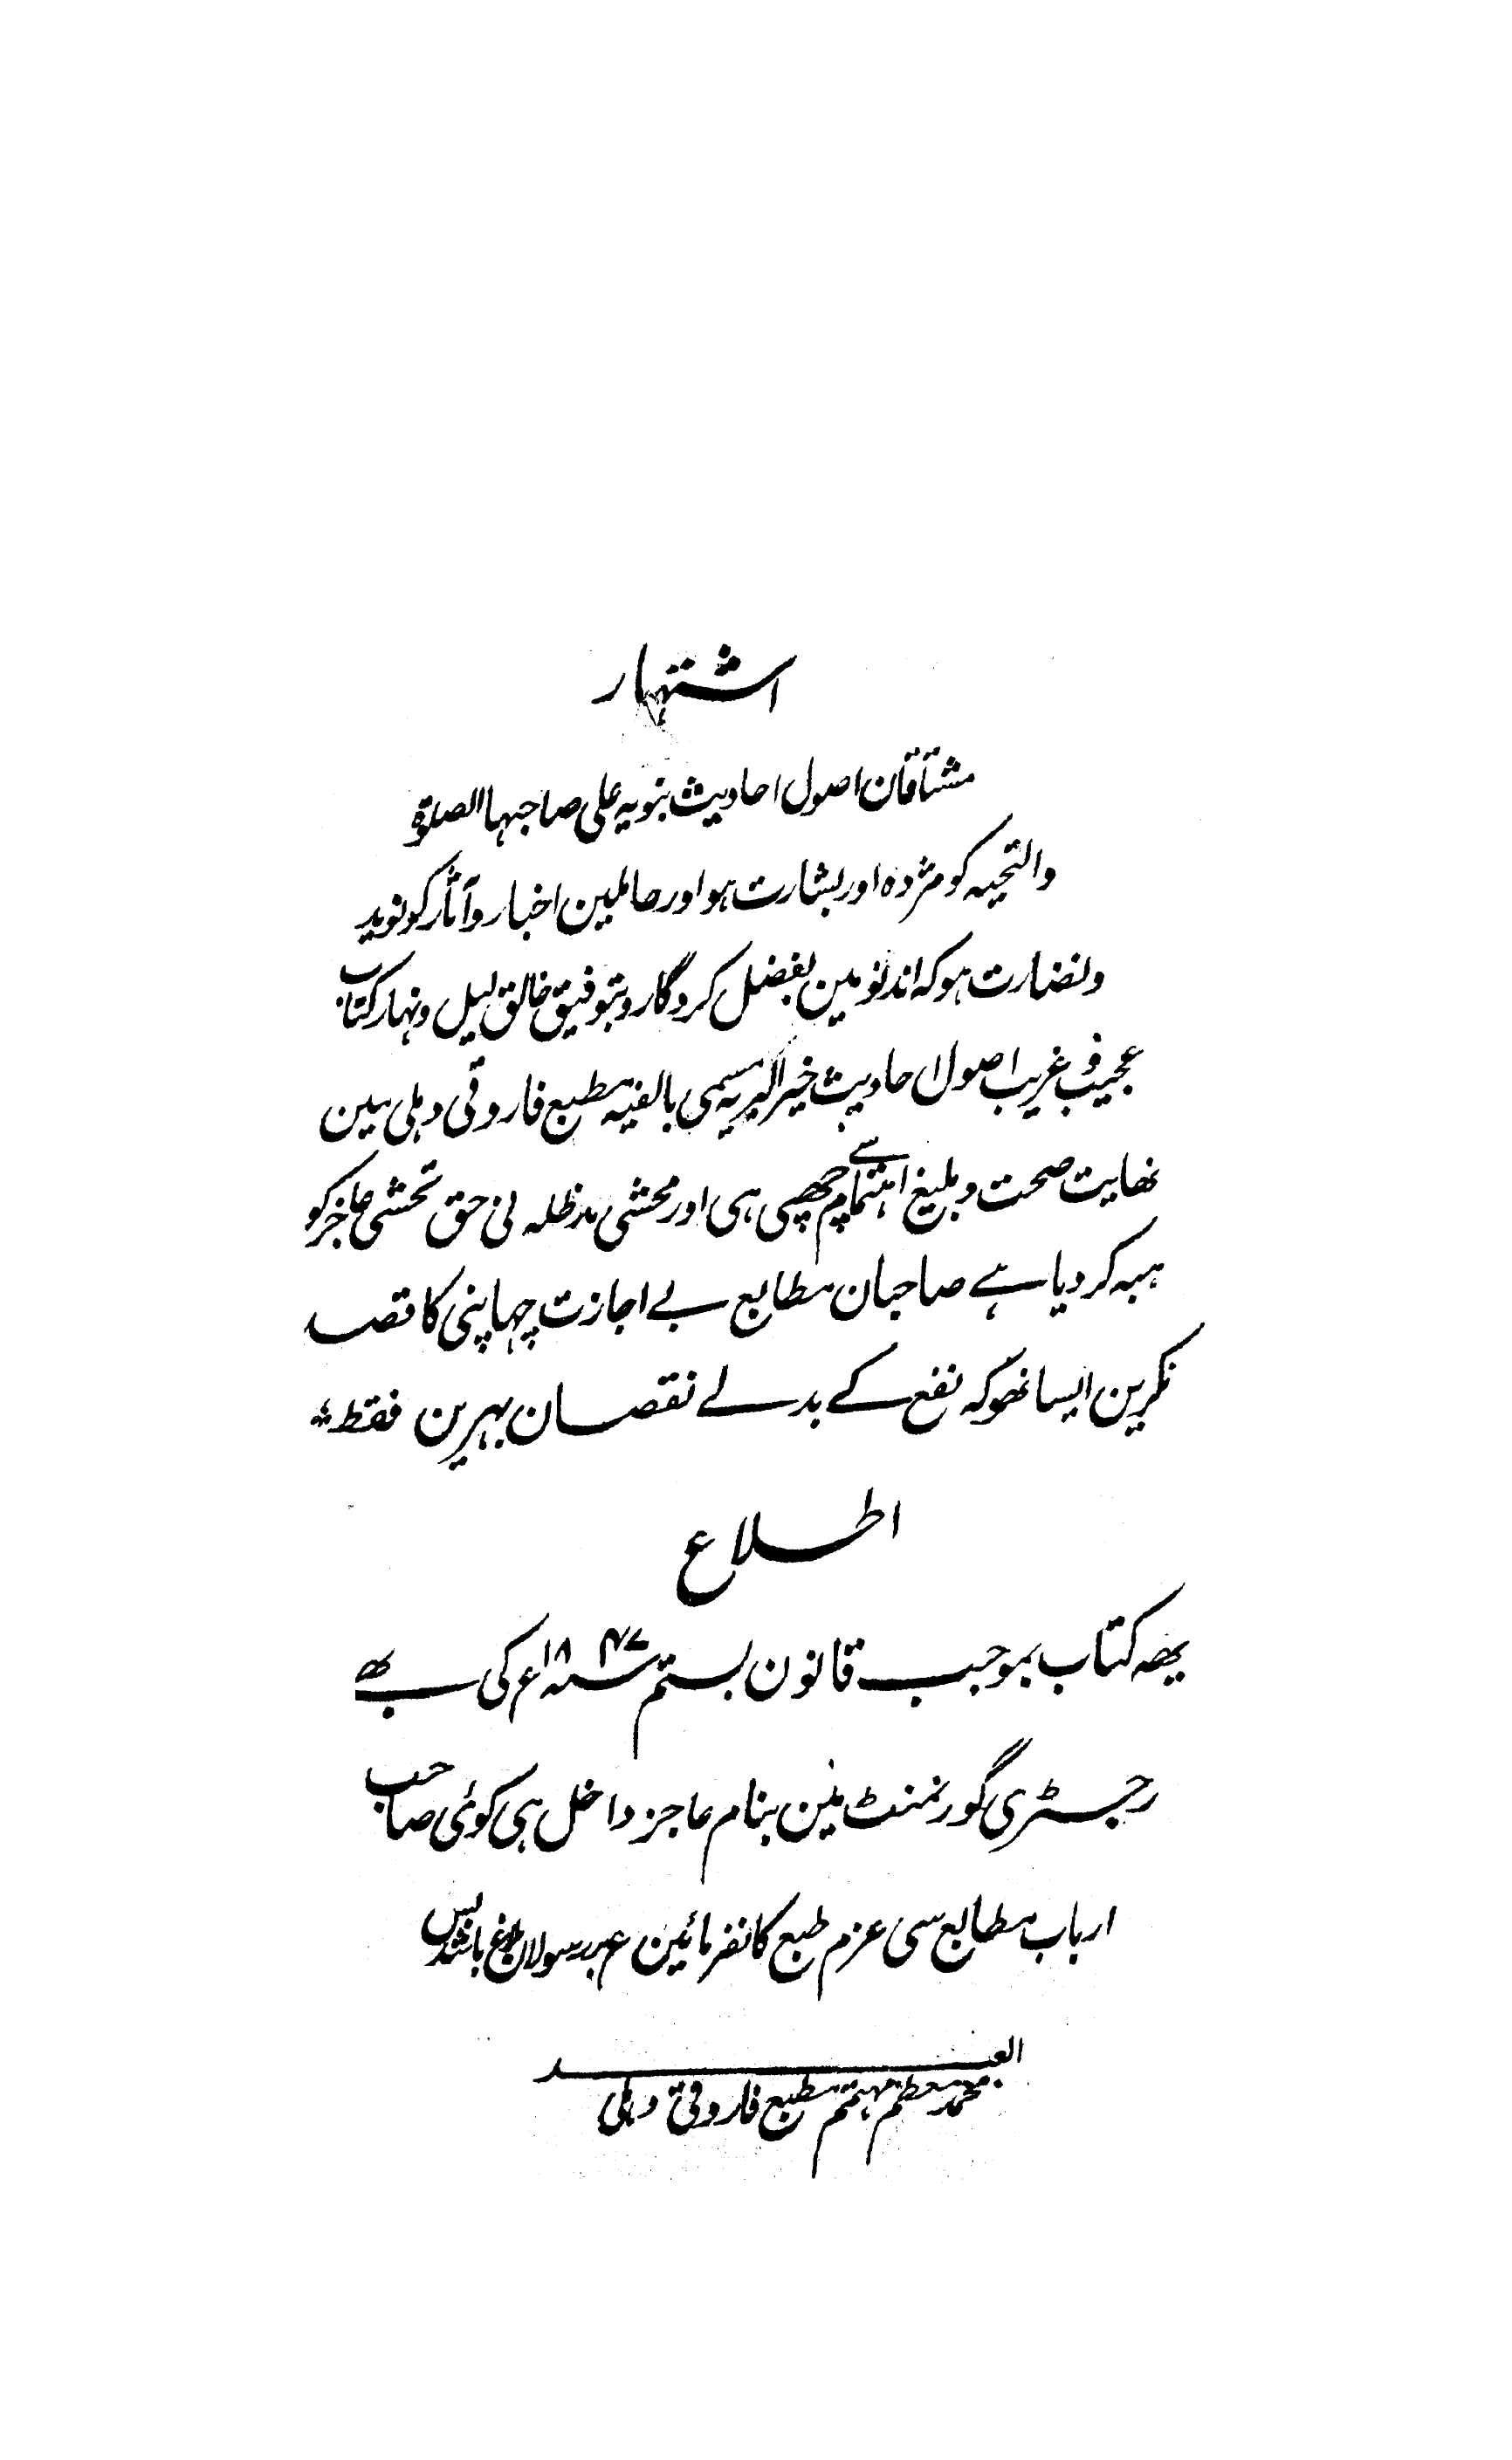 اشتہار
مشتاقان اصول احادیث نبویہ علی صاحبہا الصلوۃ
والتحیہ کو مژدہ اور بشارت ہو اور حاملین اخبار و آثار کو نوید
ونضارت ہو کہ اندنو مین بفضل کردگار و بتوفیق خالق لیل و نہار کتاب
عجیب و غریب اصول احادیث خیر البریہ مسمی بالفیہ مطبع فاروقی دہلی مین
نہایت صحت و بلیغ اہتمام سے چھپی ہی اور محشی مدظلہ نی حق تحشی عاجز کو
ہبہ کر دیا ہے صاحبان مطابع بے اجازت چہاپنی کا قصد
نکرین ایسا نہو کہ نفع کے بدلے نقصان بہرین فقط
اطلاع
یہہ کتاب بموجب قانون بستم سنہ ۱۸۴۷ع کی بہے
رجسٹری گورنمنٹ مین بنام عاجز داخل ہی کوئی صاحب
ارباب مطابع سی عزم طبع کا نفرمائین ع بر رسولان بلاغ باشد و بس
العبد
محمد معظم مہتمم مطبع فاروقی دہلی